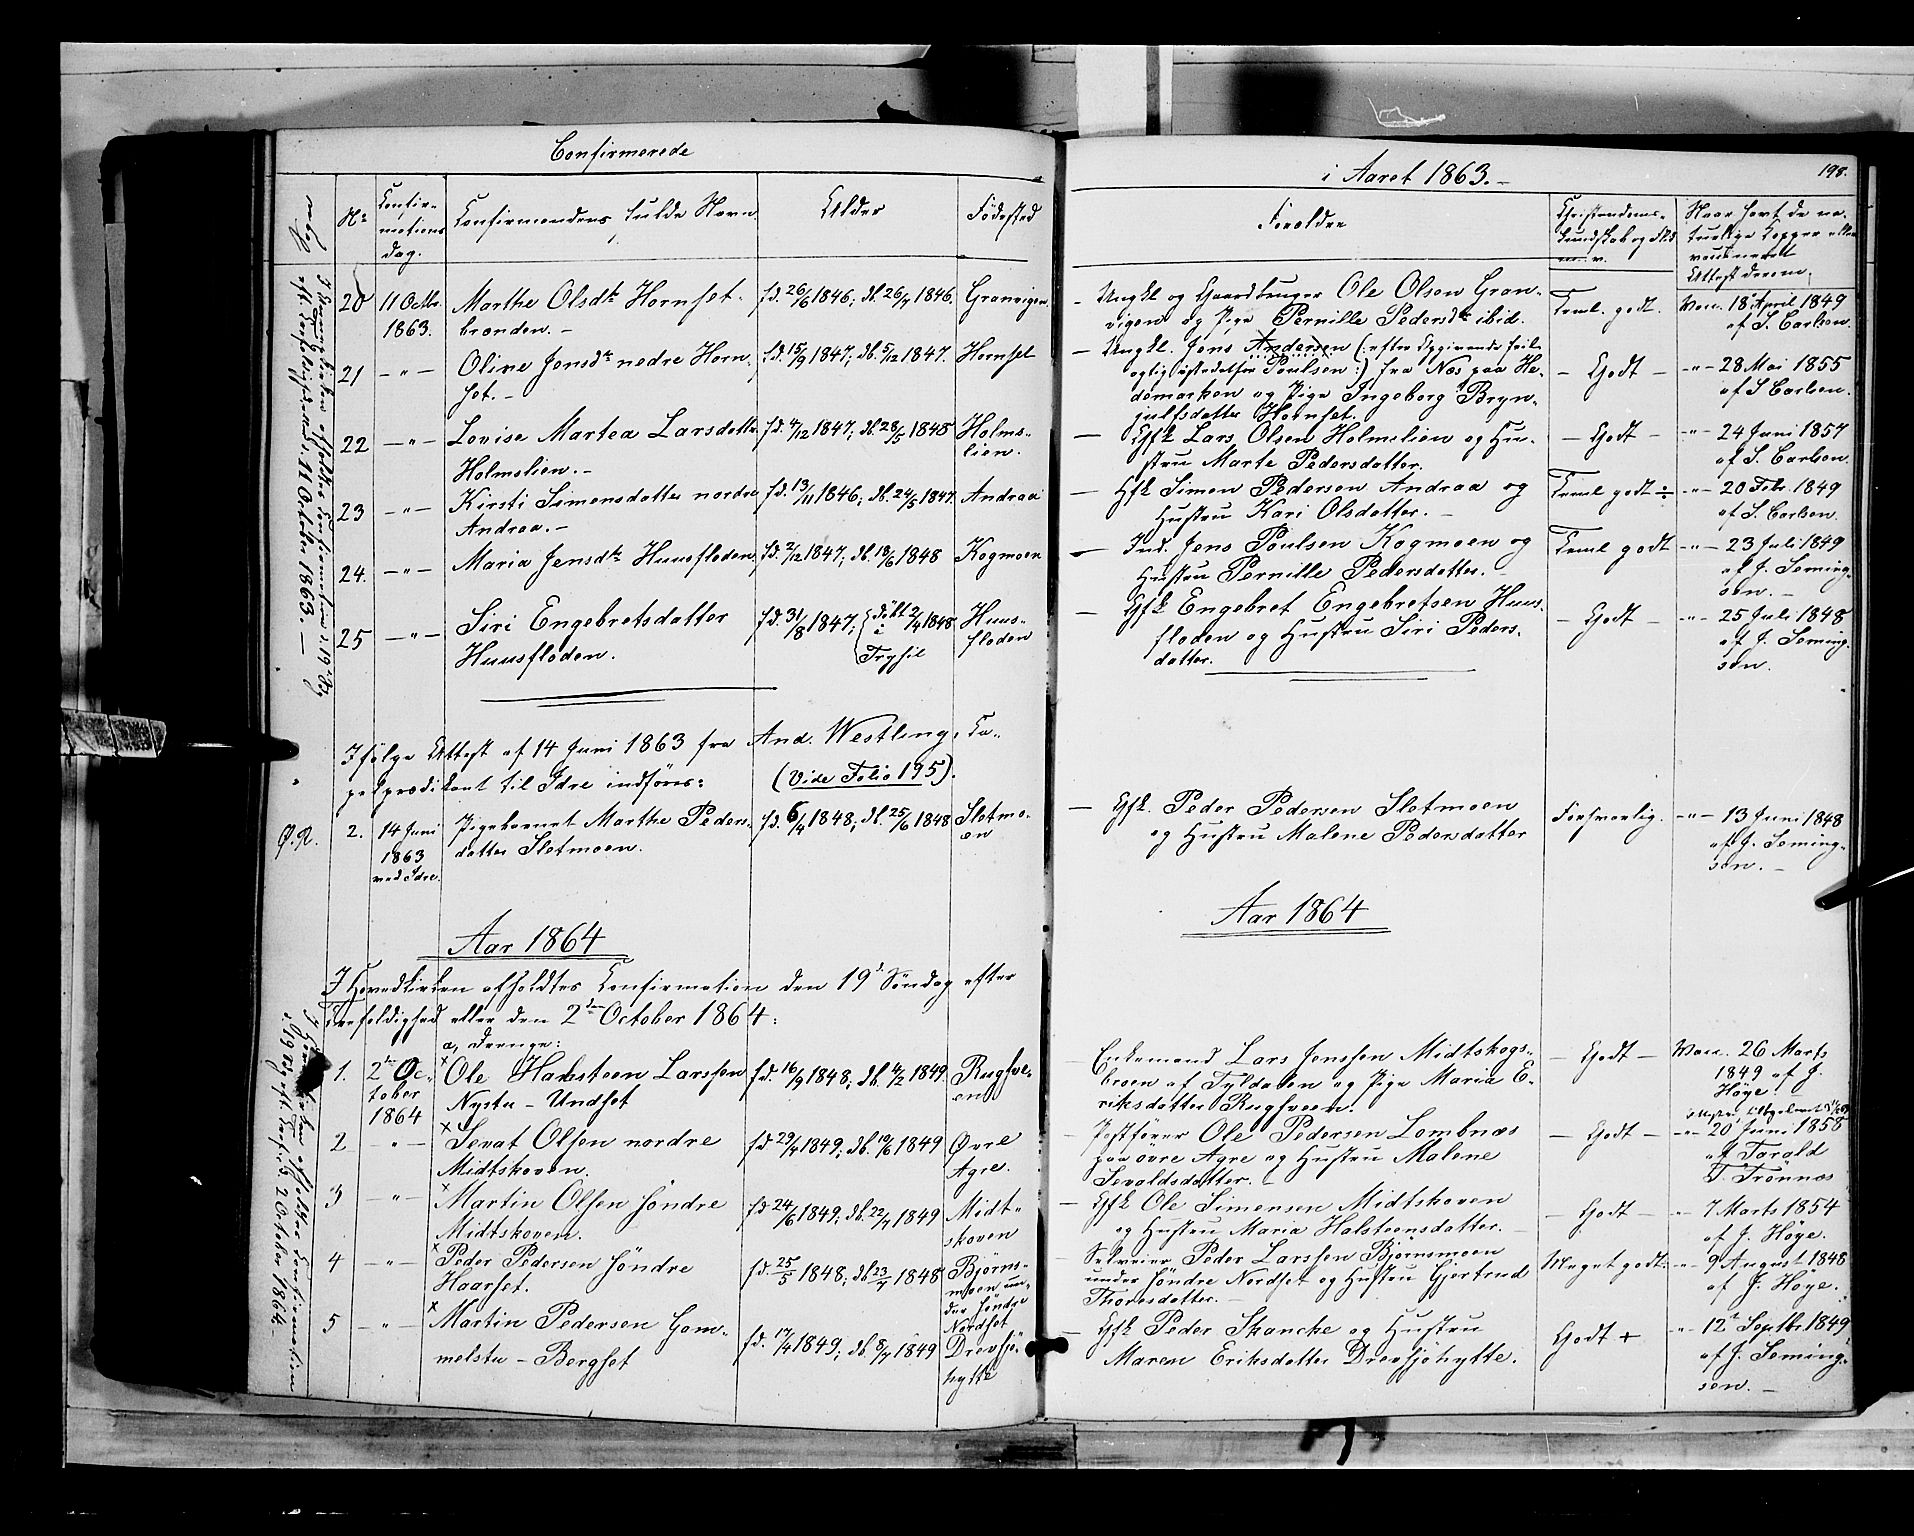 Confirmerede
i Aaret 1863.-
198.
N°
Confir-
mations
dag.
Confirmandens fulde Navn
Alder
Fødested
Forældre
Christendoms-
kundskab og Flid
m.v.
Naar havt de na-
turlige Kopper eller
vaccineret
Attest derom.
20
11 Octbr.
1863.
Marthe Olsdtr Hornset-
brænden.-
fd. 26/6 1846; db. 26/7 1846.
Granvigen
- Ungkl og Gaardbruger Ole Olsen Gran-
vigen og Pige Pernille Pedersdtr ibid.
Teml. godt.
Vac. 18 April 1849
af S. Carlsen.
21
-"-
Oline Jensdtr nedre Horn-
set.-
fd. 15/9 1847; db. 5/12 1847.
Hornset
- Ungkl. Jens Andersen (: efter Opgivende feil-
agtig istedetfor Poulsen:) fra Næs paa He-
demarken og Pige Ingeborg Bryn-
julfsdatter Hornset.
- Godt -
-"- 28 Mai 1855
af S. Carlsen.
22
-"-
Lovise Martea Larsdatter
Holmslien.-
fd. 4/12 1847; db. 28/5 1848
Holms-
lien.
- Gfk Lars Olsen Holmslien og Hu-
stru Marte Pedersdatter.
- Godt -
-"- 24 Juni 1857
af S. Carlsen.
23
-"-
Kirsti Simensdatter nordre
Andraa.-
fd. 13/11 1846; db. 24/5 1847.
Andraa
- Gfk Simen Pedersen Andraa og
Hustru Kari Olsdatter.-
Teml godt ÷
-"- 20 Febr. 1849
af S. Carlsen.
24.
-"-
Maria Jensdtr Huusfloden.
fd. 2/12 1847; db. 18/6 1848
Kogmoen
- Ind. Jens Poulsen Kogmoen og
Hustru Pernille Pedersdatter.-
Teml godt
-"- 23 Juli 1849
af J. Seming-
sen.-
25
-"-
Siri Engebretsdatter
Huusfloden.
fd. 31/8 1847; {døbt 2/4 1848
i
Trysil
Huus-
floden
- Gfk Engebret Engebretsen Huus-
floden og Hustru Siri Peders-
datter.
- Godt -
-"- 25 Juli 1848
af J. Seming-
sen.
Ifølge Attest af 14 Juni 1863 fra And. Westling, Ca-
pelprædikant til Idre indføres:
(Vide Folio 195).
2.
14 Juni
1863
ved Idre.
Pigebarnet Marthe Peders-
datter Sletmoen.
fd. 6/4 1848; db. 25/6 1848
Sletmo-
en
- Gfk. Peder Pedersen Sletmoen
og Hustru Malene Pedersdatter
Forsvarlig.
-"- 13 Juni 1848
af J. Seming-
sen.-
Aar 1864
Aar 1864
I Hovedkirken afholdtes Confirmation den 19d Søndag efter
Trefoldighed eller den 2den October 1864:
a, Drenge:
1.
2den Oc-
tober
1864
x Ole Halsteen Larssen
Nystu - Undset
fd. 16/9 1848; db. 4/2 1849.
Rugsve-
en
- Enkemand Lars Jenssen Midtskogs-
broen af Tyldalen og Pige Maria E-
riksdatter Rugsveen.
- Godt -
Vac. 26 Marts
1849 af J.
Høye.-
2
-"-
x Sevat Olsen nordre
Midtskoven.
fd. 29/4 1849; db. 10/6 1849
Øvre
Agre.
- Postfører Ole Pedersen Lombnæs
paa øvre Agre og Hustru Malene
Sevaldsdatter.-
- Godt -
-"- 20 Juni 1858
af Tarald
T. Trønnæs
3
-"-
x Martin Olsen søndre
Midtskoven.
fd. 24/6 1849; db. 22/7 1849
Midt-
skoven
- Gfk Ole Simensen Midtskoven
og Hustru Maria Halsteensdatter.-
- Godt -
-"- 7 Marts 1854
af J. Høye.
4
-"-
x Peder Pedersen søndre
Haarset.
fd. 25/5 1848; db 23/7 1848
Bjørns-
moen un-
der søndre
Nordset
- Selveier Peder Larssen Bjørnsmoen
under søndre Nordset og Hustru Gjertrud
Thoresdatter.-
Meget godt.
-"- 9 August 1848
af J. Høye.
5
-"-
x Martin Pedersen Gam-
melstu - Bergset
fd. 17/4 1849; db. 8/7 1849
Drevsjø-
hytte
- Gfk Peder Skancke og Hustru
Maren Eriksdatter Drevsjøhytte.
Godt +
-"- 12te Septbr 1849
af J. Seming-
sen.-